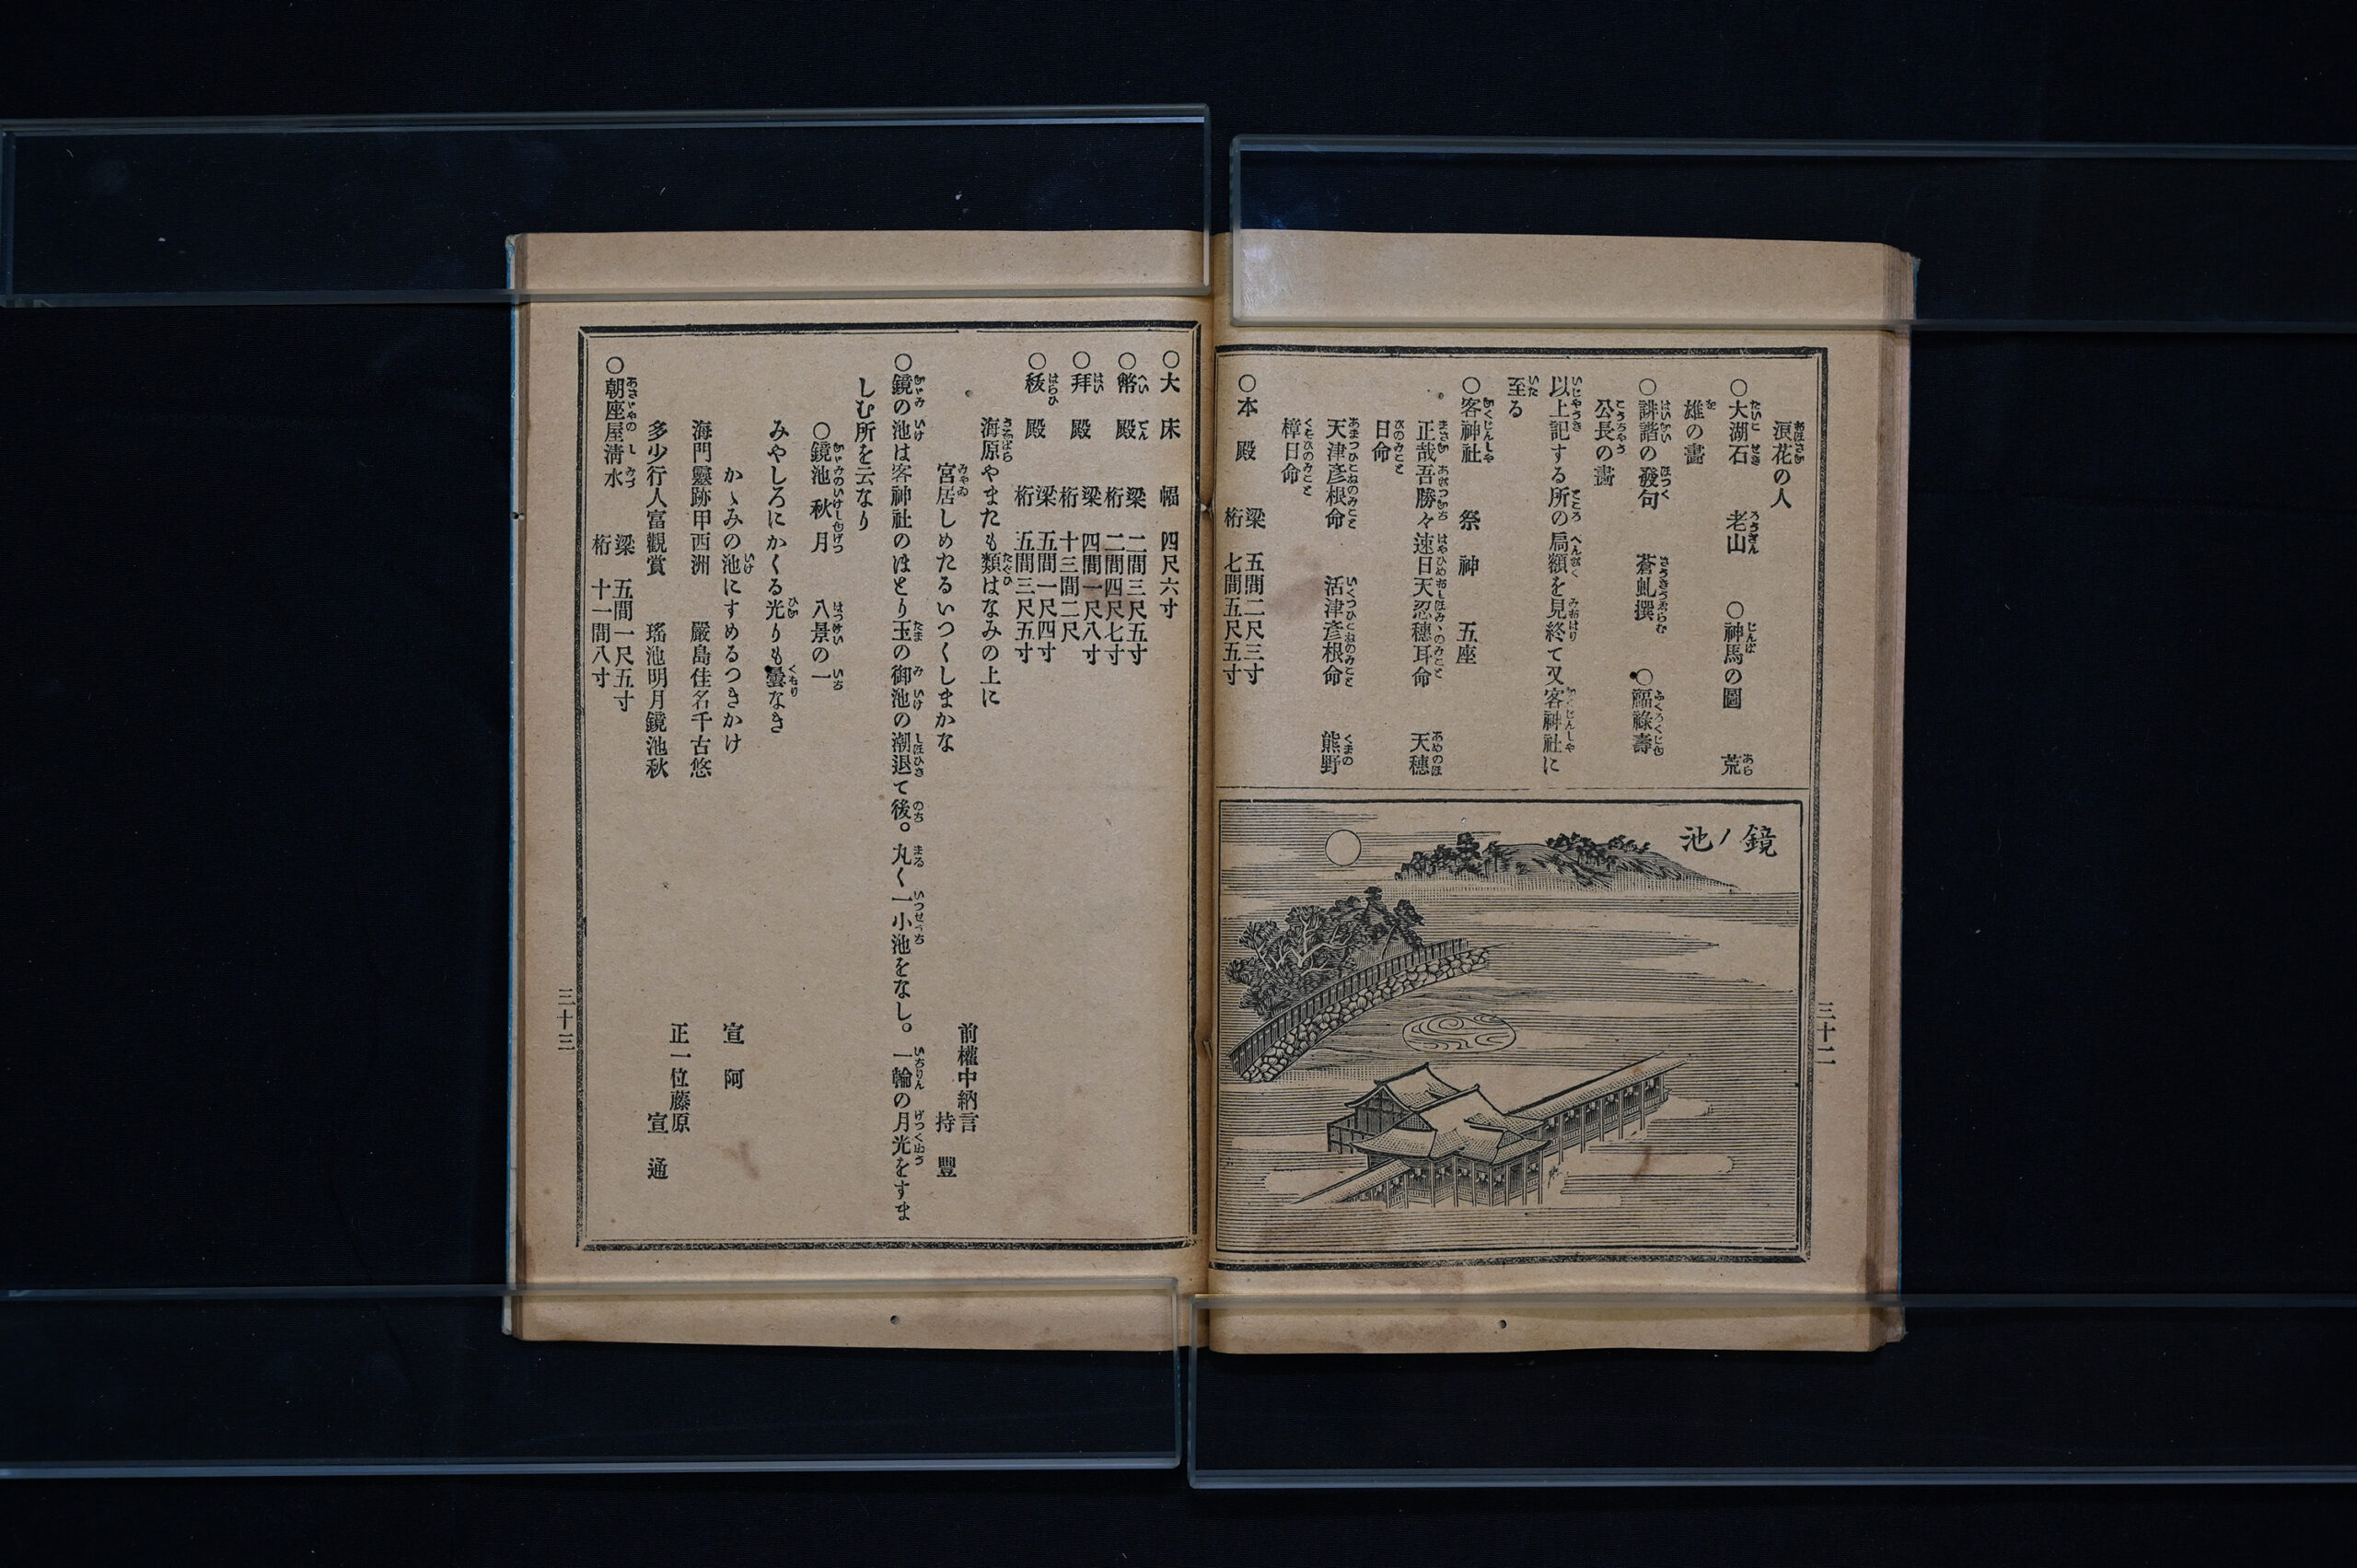 浪花の人
○大湖石　老山　○神馬の圖　荒
雄の畫
○誹諧の發句　蒼虬撰　○福祿壽
公長の畵
以上記する所の扁額を見終て又客神社に
至る
○客神社　祭神　五座
正哉吾勝々速日天忍穗耳命　天穗
日命
天津彥根命　活津彥根命　熊野
樟日命
○本殿　梁　五間二尺三寸
桁　七間五尺五寸
鏡ノ池
三十二
○大床　幅　四尺六寸
○幣殿　梁　二間三尺五寸
桁　二間四尺七寸
○拜殿　梁　四間一尺八寸
桁　十三間二尺
○祓殿　梁　五間一尺四寸
桁　五間三尺五寸
海原やまたも類はなみの上に
前權中納言
宮居しめたるいつくしまかな　持豐
○鏡の池は客神社のほとり玉の御池の潮退て後。丸く一小池をなし。一輪の月光をすま
しむ所を云なり
○鏡池秋月　八景の一
みやしろにかくる光りも曇なき
かゝみの池にすめるつきかけ　宣阿
海門靈跡甲西洲　嚴島佳名千古悠
正一位藤原
多少行人富觀賞　瑤池明月鏡池秋　宣通
○朝座屋淸水　梁　五間一尺五寸
桁　十一間八寸
三十三